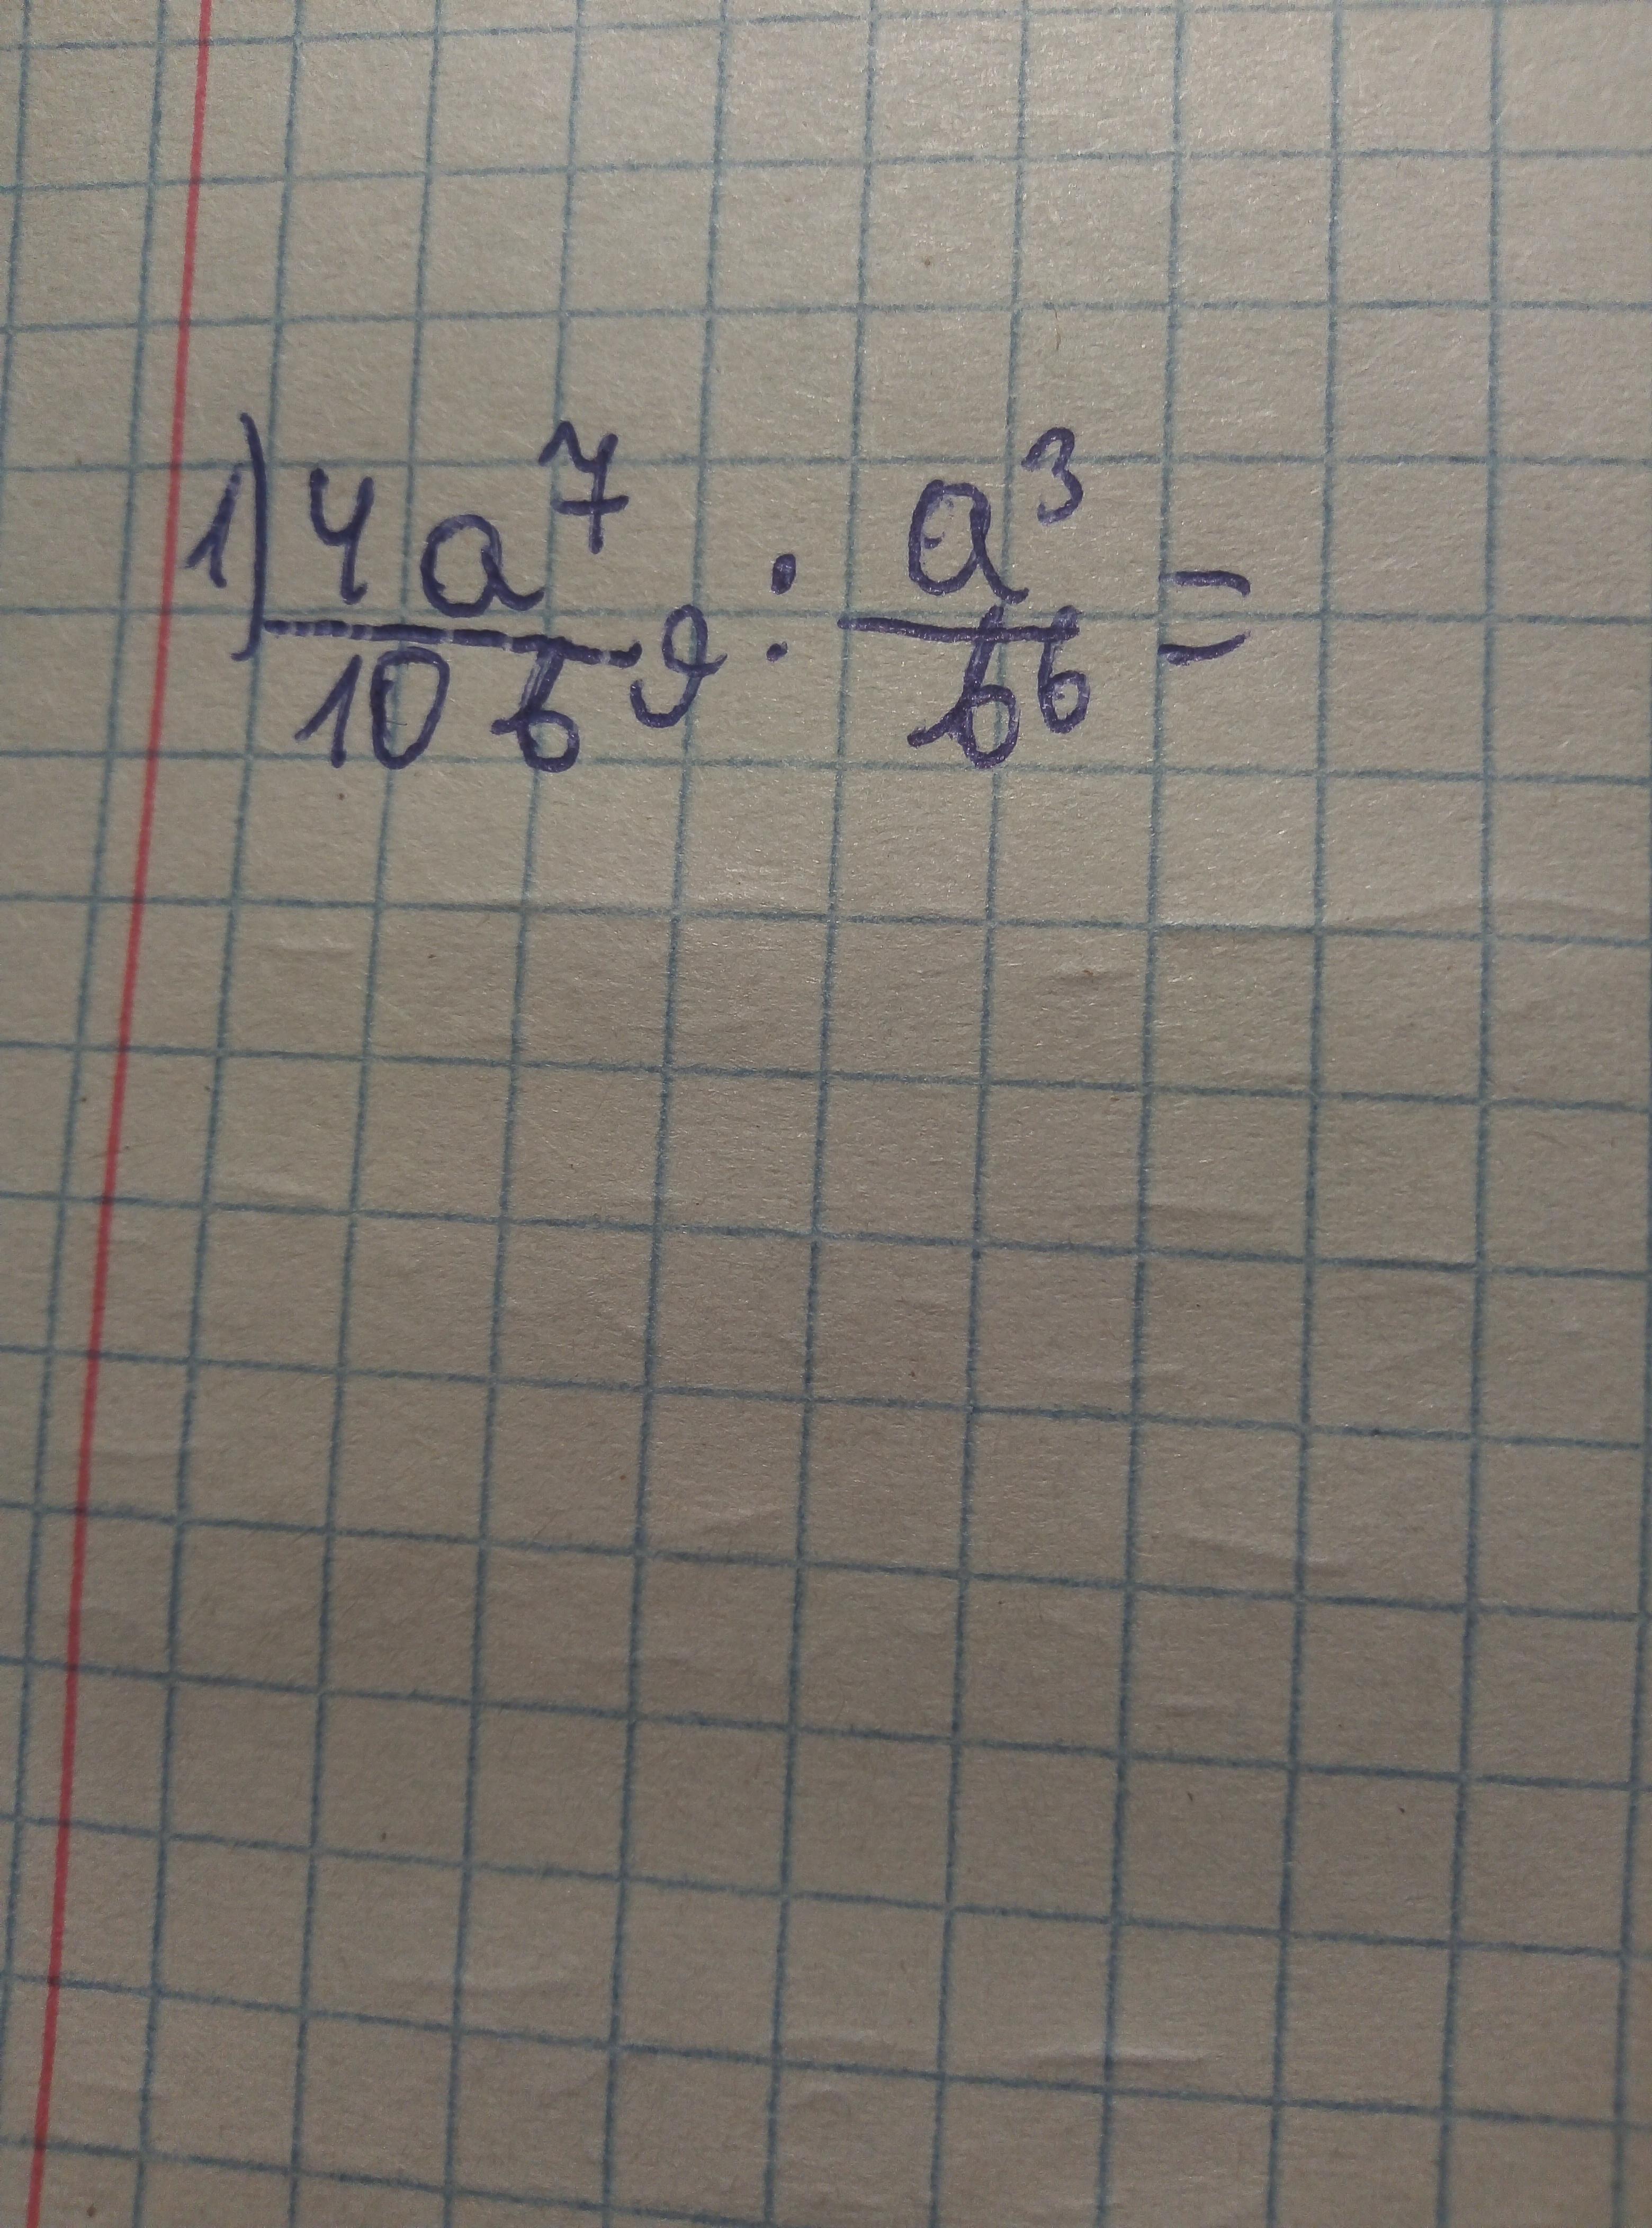 1) \frac{4a^7}{10b^9} : \frac{a^3}{b^6} =